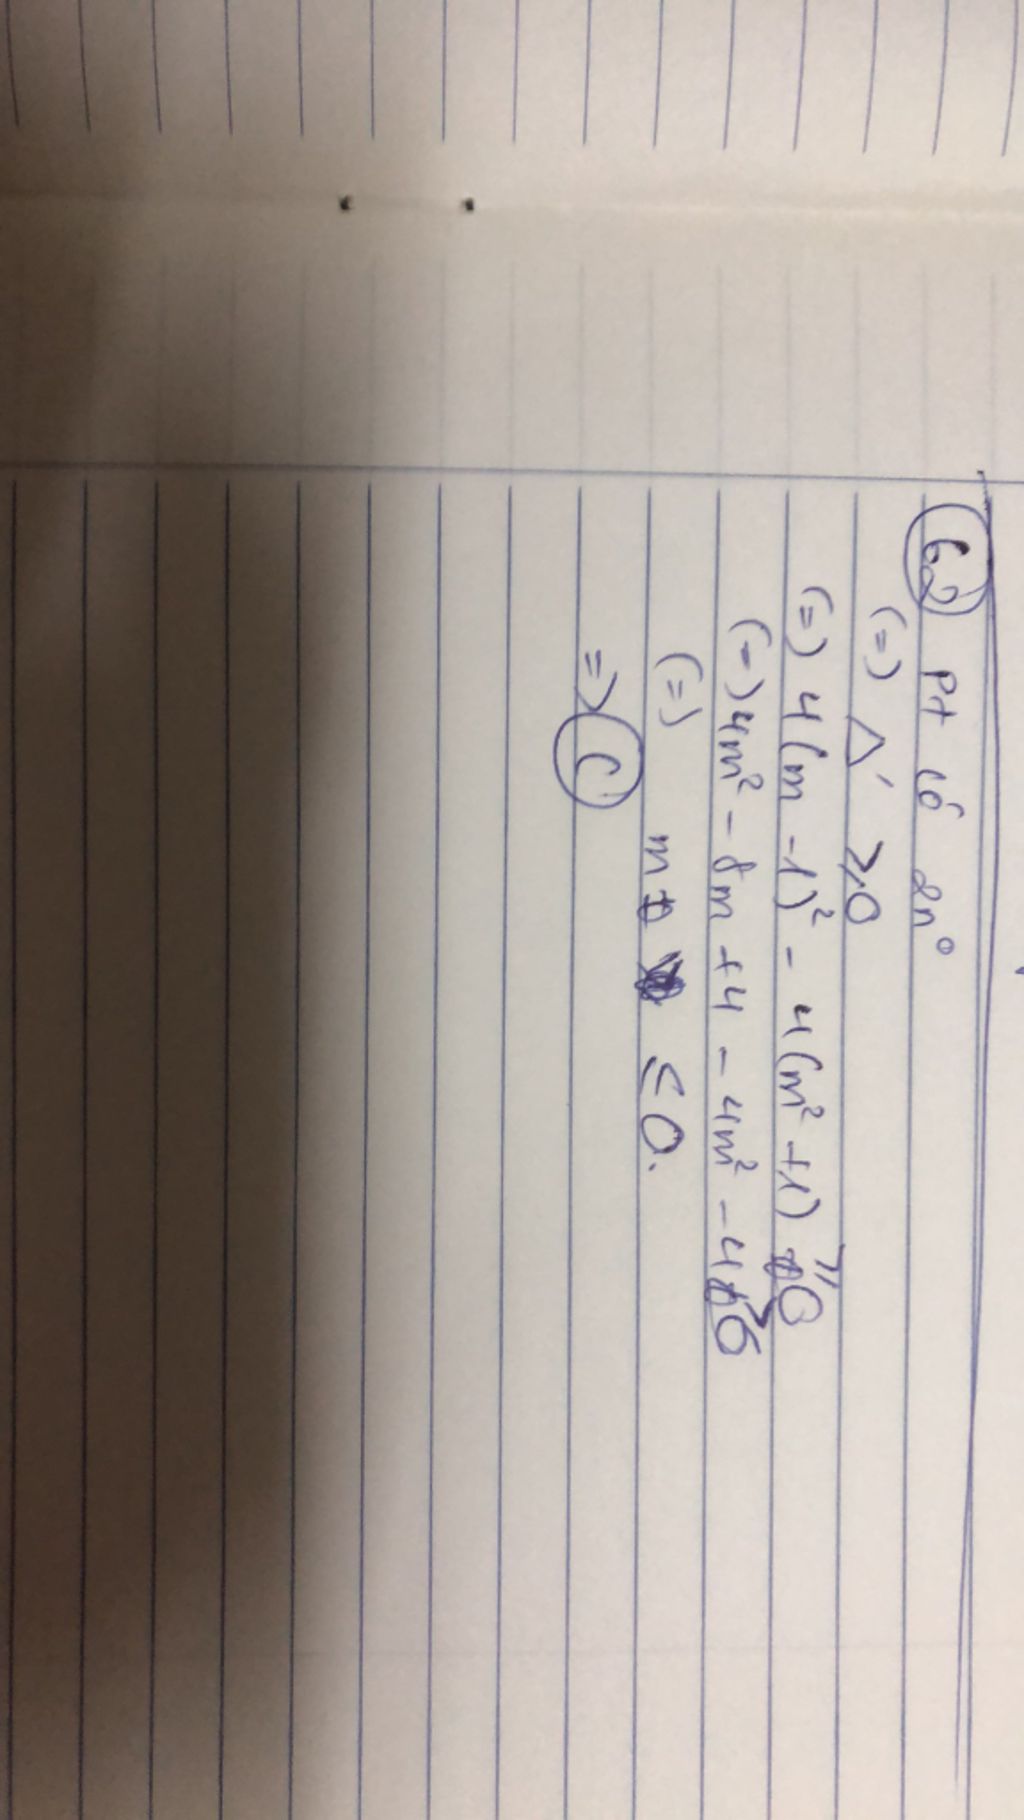 62) Pt có 2n°
(=) Δ' ≥ 0
(=) 4(m - 1)² - 4(m² + 1) ≥ 0
(=) 4m² - 8m + 4 - 4m² - 4 ≥ 0
(=) m ≤ 0.
=> C